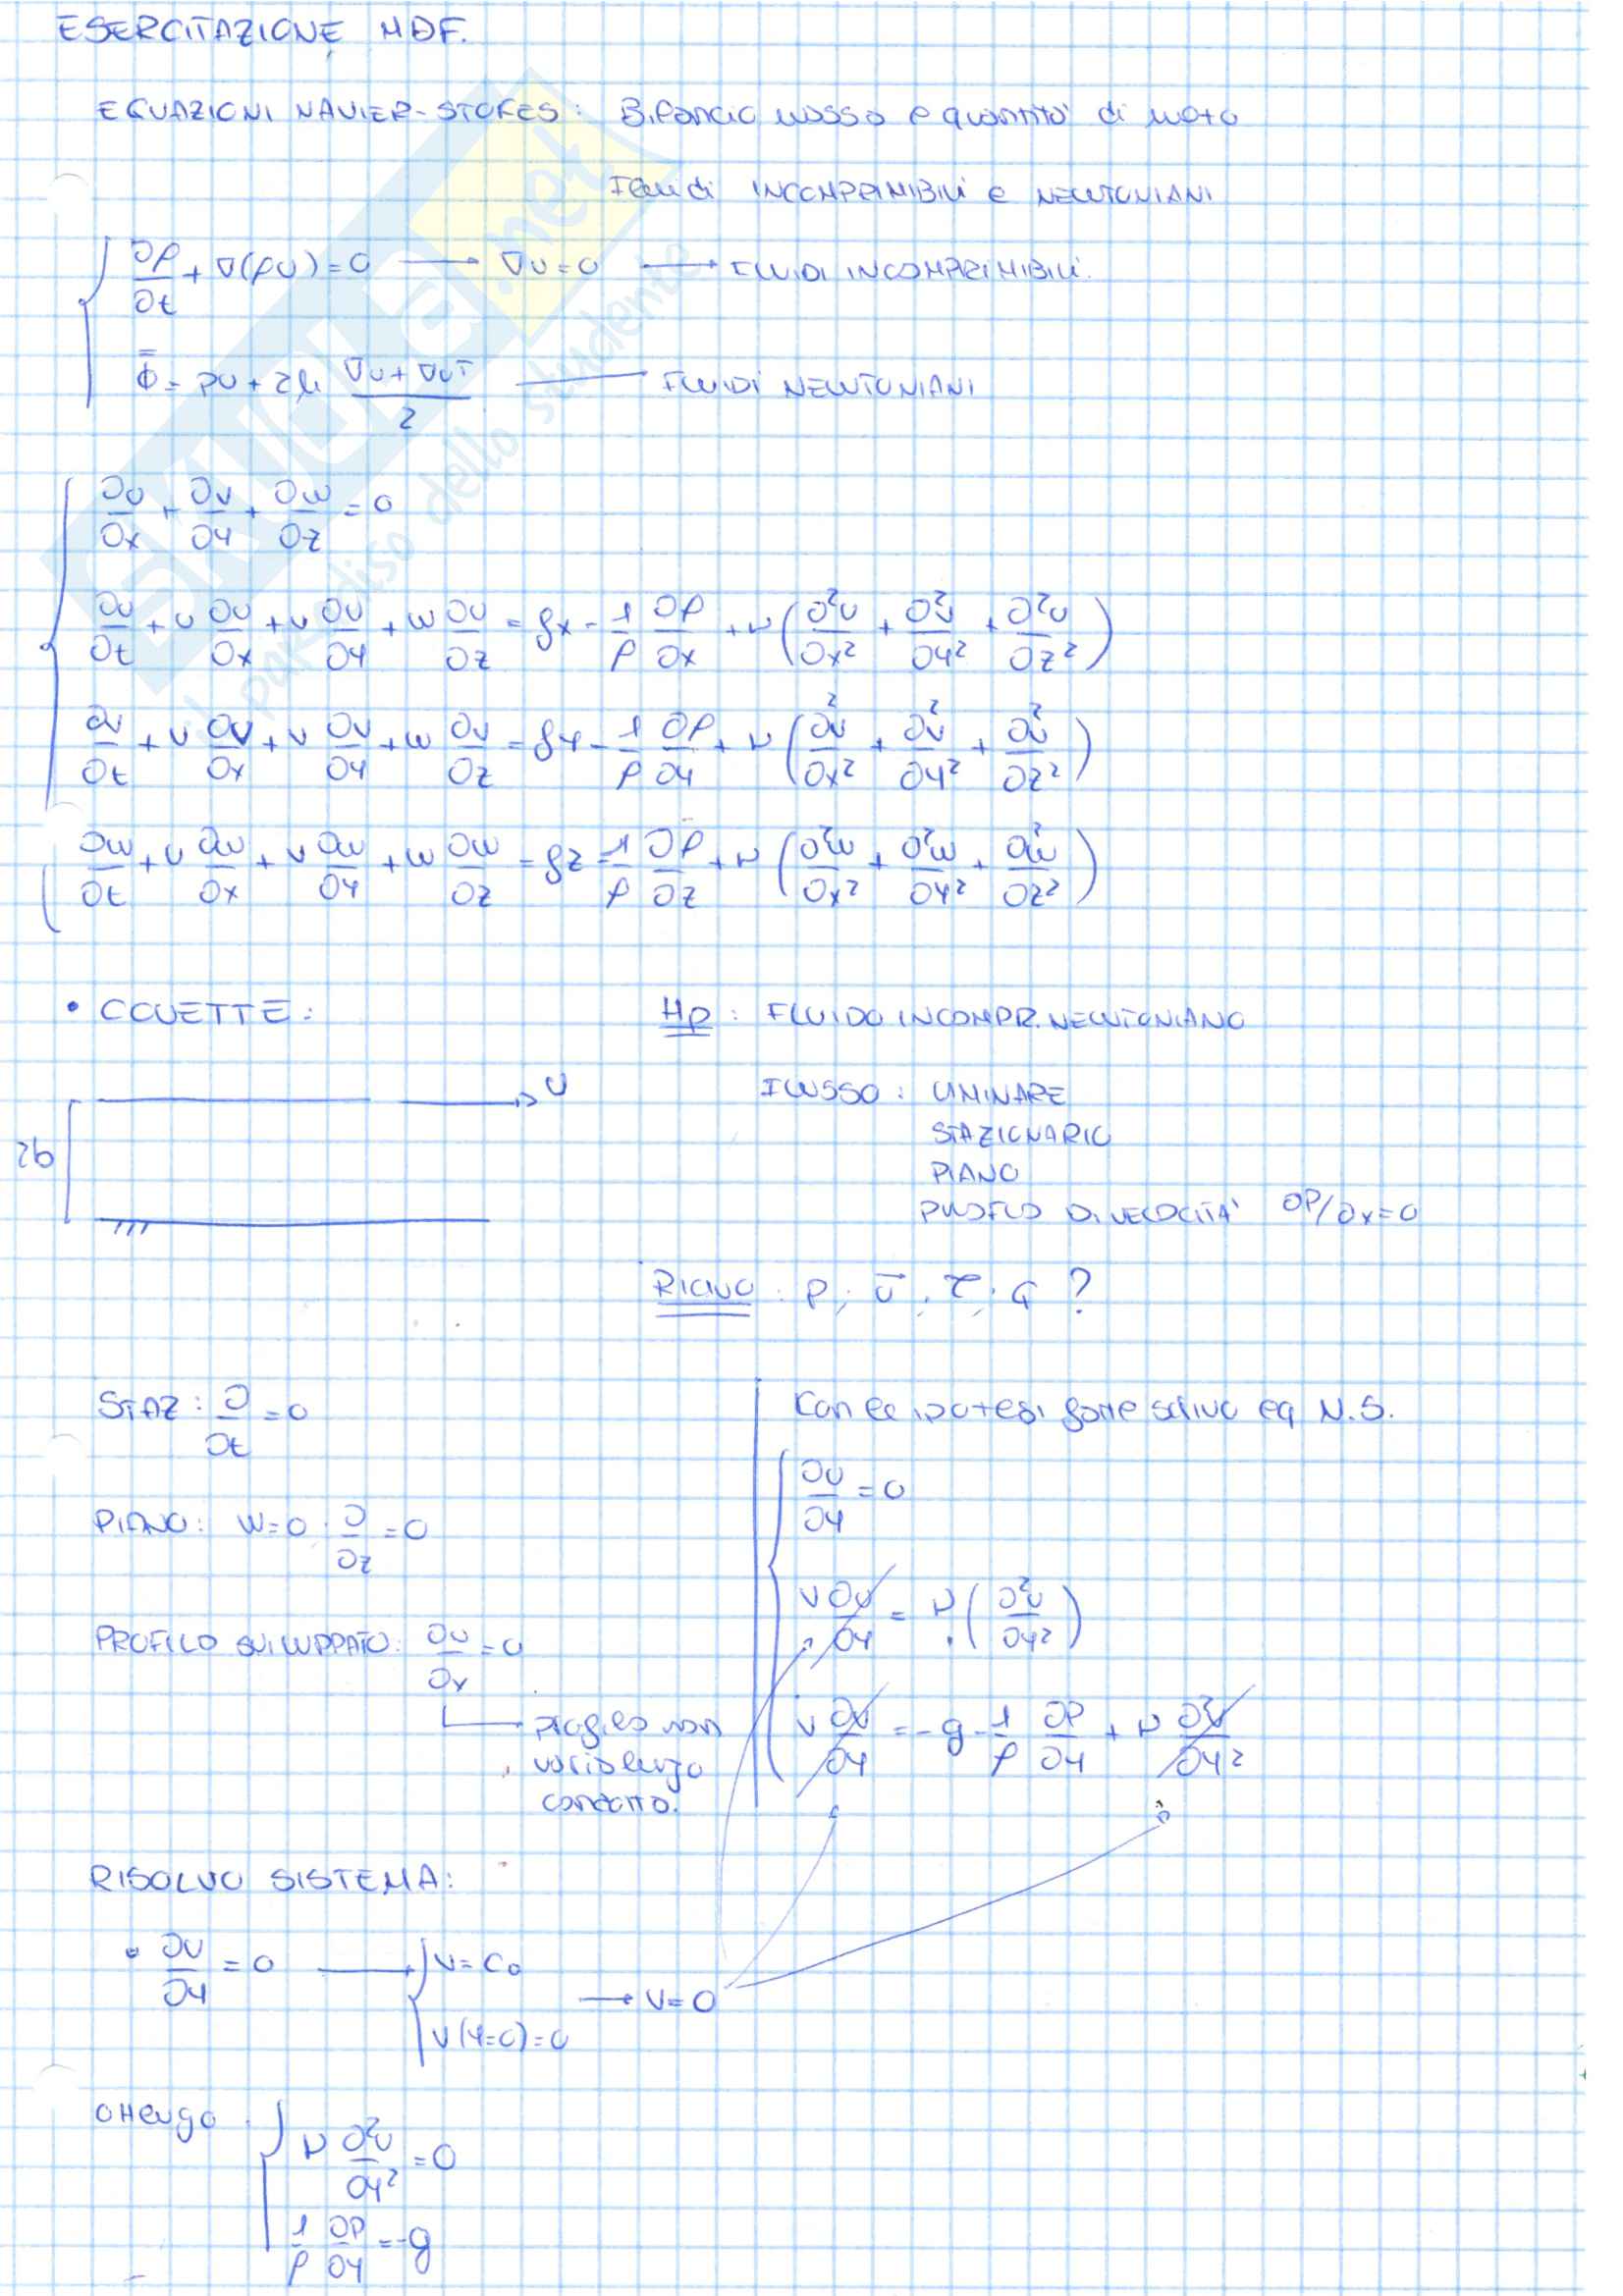 ESERCITAZIONE MDF.
EQUAZIONI NAVIER-STOKES: Bilancio massa e quantità di moto
Fluidi INCOMPRIMIBILI e NEWTONIANI
∂ρ/∂t + ∇(ρu) = 0 → ∇u = 0 → FLUIDI INCOMPRIMIBILI.
Φ̿ = pU + 2μ (∇u + ∇uᵀ)/2 — FLUIDI NEWTONIANI
∂u/∂x + ∂v/∂y + ∂w/∂z = 0
∂u/∂t + u ∂u/∂x + v ∂u/∂y + w ∂u/∂z = gx - 1/ρ ∂p/∂x + ν (∂²u/∂x² + ∂²u/∂y² + ∂²u/∂z²)
∂v/∂t + u ∂v/∂x + v ∂v/∂y + w ∂v/∂z = gy - 1/ρ ∂p/∂y + ν (∂²v/∂x² + ∂²v/∂y² + ∂²v/∂z²)
∂w/∂t + u ∂w/∂x + v ∂w/∂y + w ∂w/∂z = gz - 1/ρ ∂p/∂z + ν (∂²w/∂x² + ∂²w/∂y² + ∂²w/∂z²)
• COUETTE:
Hp : FLUIDO INCOMPR. NEWTONIANO
U
2b
FLUSSO : LAMINARE
STAZIONARIO
PIANO
PROFILO DI VELOCITÀ ∂P/∂x=0
: P, ū, τ, Q ?
STAZ : ∂/∂t = 0
PIANO: W=0 , ∂/∂z = 0
PROFILO SVILUPPATO: ∂u/∂x = 0
profilo non
varia lungo
condotto.
Con le ipotesi fatte scrivo eq N.S.
∂v/∂y = 0
v ∂u/∂y = ν (∂²u/∂y²)
v ∂v/∂y = -g - 1/ρ ∂P/∂y + ν ∂²v/∂y²
RISOLVO SISTEMA:
• ∂v/∂y = 0 → v = C₀
v(y=0)=0
→ v=0
Ottengo
ν ∂²u/∂y² = 0
1/ρ ∂P/∂y = -g
SKUOLA.net
il paradiso dello studente